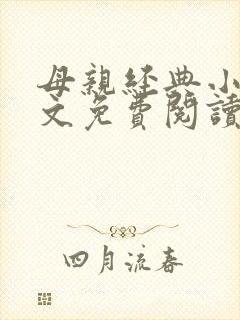 母親経典小
文免費閱讀
四月流春